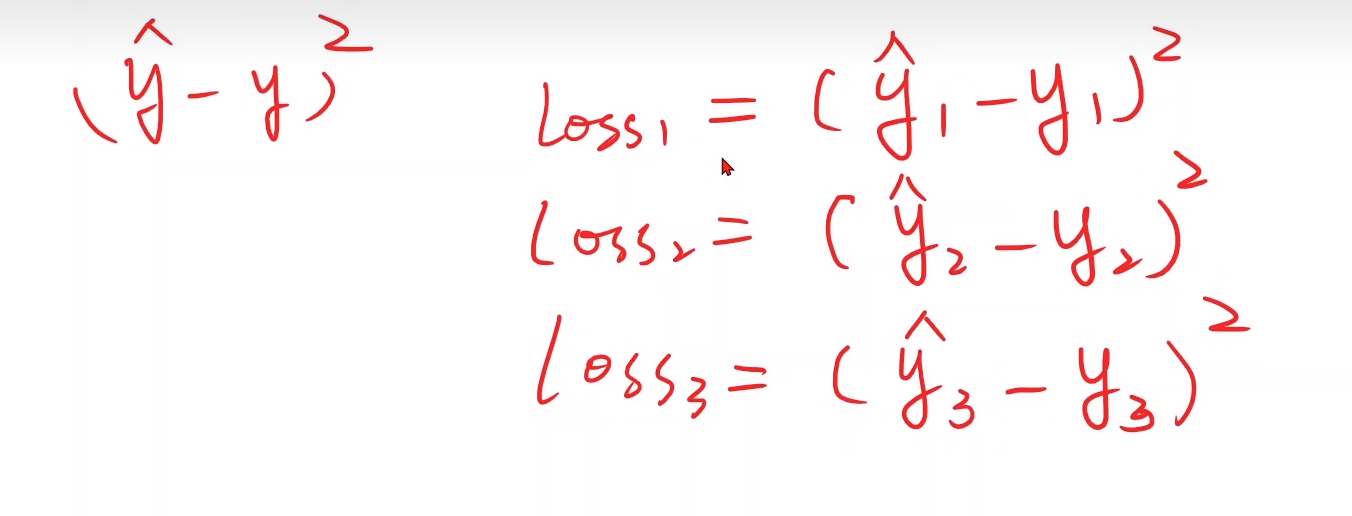 (ŷ - y)²
Loss₁ = (ŷ₁ - y₁)²
Loss₂ = (ŷ₂ - y₂)²
Loss₃ = (ŷ₃ - y₃)²